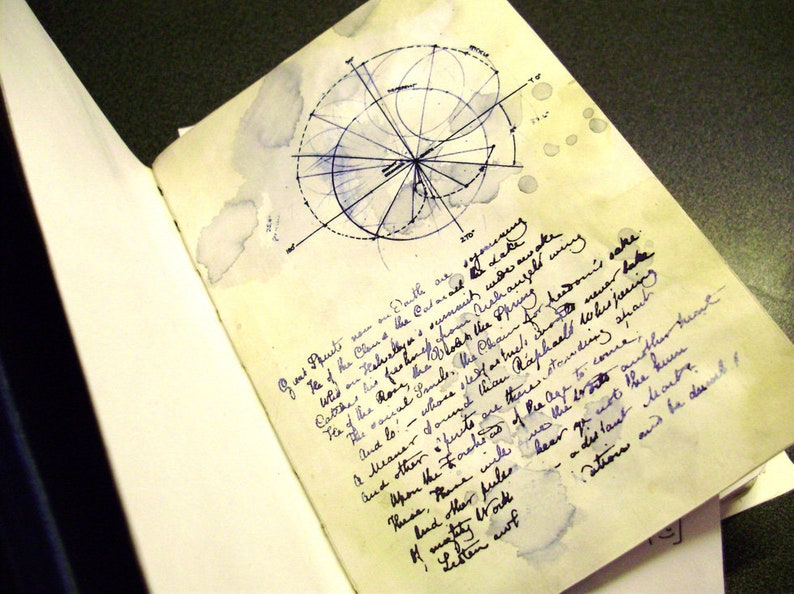 EPICYCLE
DEFERENT
180°
270°
Great Spirits now on Earth are sojourning
He of the Cloud the Cataract the Lake
Who on Helvellyn's summit wide awake
Catches his freshness from Archangels wing
He of the Rose, the Violet the Spring
The social Smile, the Chain for freedom's sake:
And lo! — whose stedfastness would never take
A Meaner Sound than Raphael's Whispering
And other Spirits are there standing apart
Upon the Forehead of the Age to come;
These, These will give the World another heart
And other pulses — hear ye not the hum
Of mighty Work — a distant Mart,
Listen and be dumb!